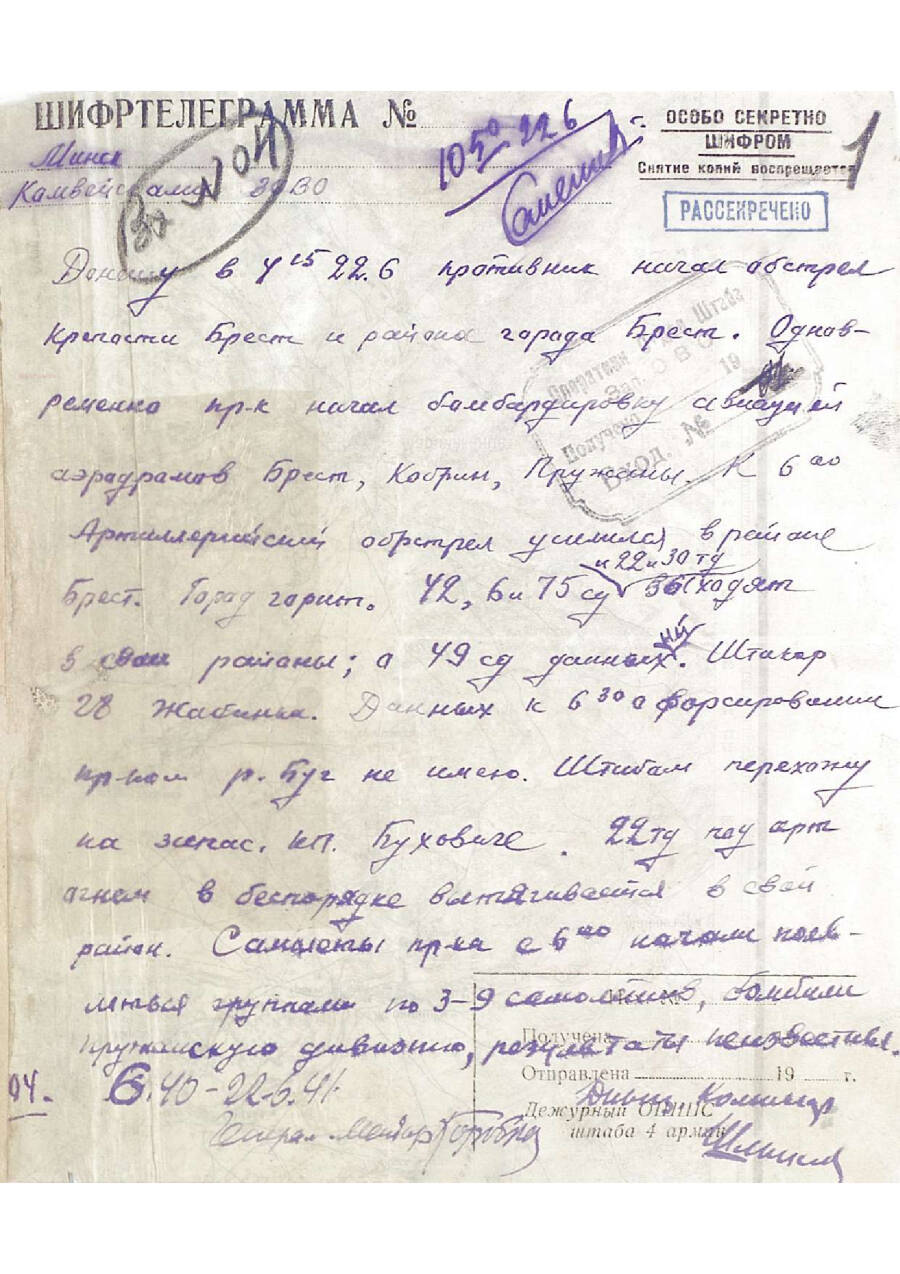 ШИФРТЕЛЕГРАММА №
10 50 22 6 г.
ОСОБО СЕКРЕТНО
ШИФРОМ
Снятие копий воспрещается
1
РАССЕКРЕЧЕНО
Минск
Доношу в 4 15 22.6 противник начал обстрел
крепости Брест и района города Брест. Однов-
ременно пр-к начал бомбардировку авиацией
аэродромов Брест, Кобрин, Пружаны. К 6 00
Артиллерийский обстрел усилился в районе
и 22 и 30 тд
Брест. Город горит. 42, 6 и 75 сд выходят
в свои районы; о 49 сд данных нет. Штакор
28 Жабинка. Данных к 6 30 о форсировании
пр-ком р. Буг не имею. Штабом перехожу
на запас. кп. Буховиче. 22 тд под арт
огнем в беспорядке вытягивается в свой
район. Самолеты пр-ка с 6 00 начали появ-
ляться группами по 3-9 самолетов, бомбили
пружанскую дивизию, результаты неизвестны.
Получена
Отправлена 19 г.
Дежурный ОШПС
штаба 4 армии
6.40-22.6.41.
Генерал-Майор Коробков
Дивиз Комиссар
Шлыков
Оперативн Штаба
Зап. ОВО
Получено 19
Вход. №